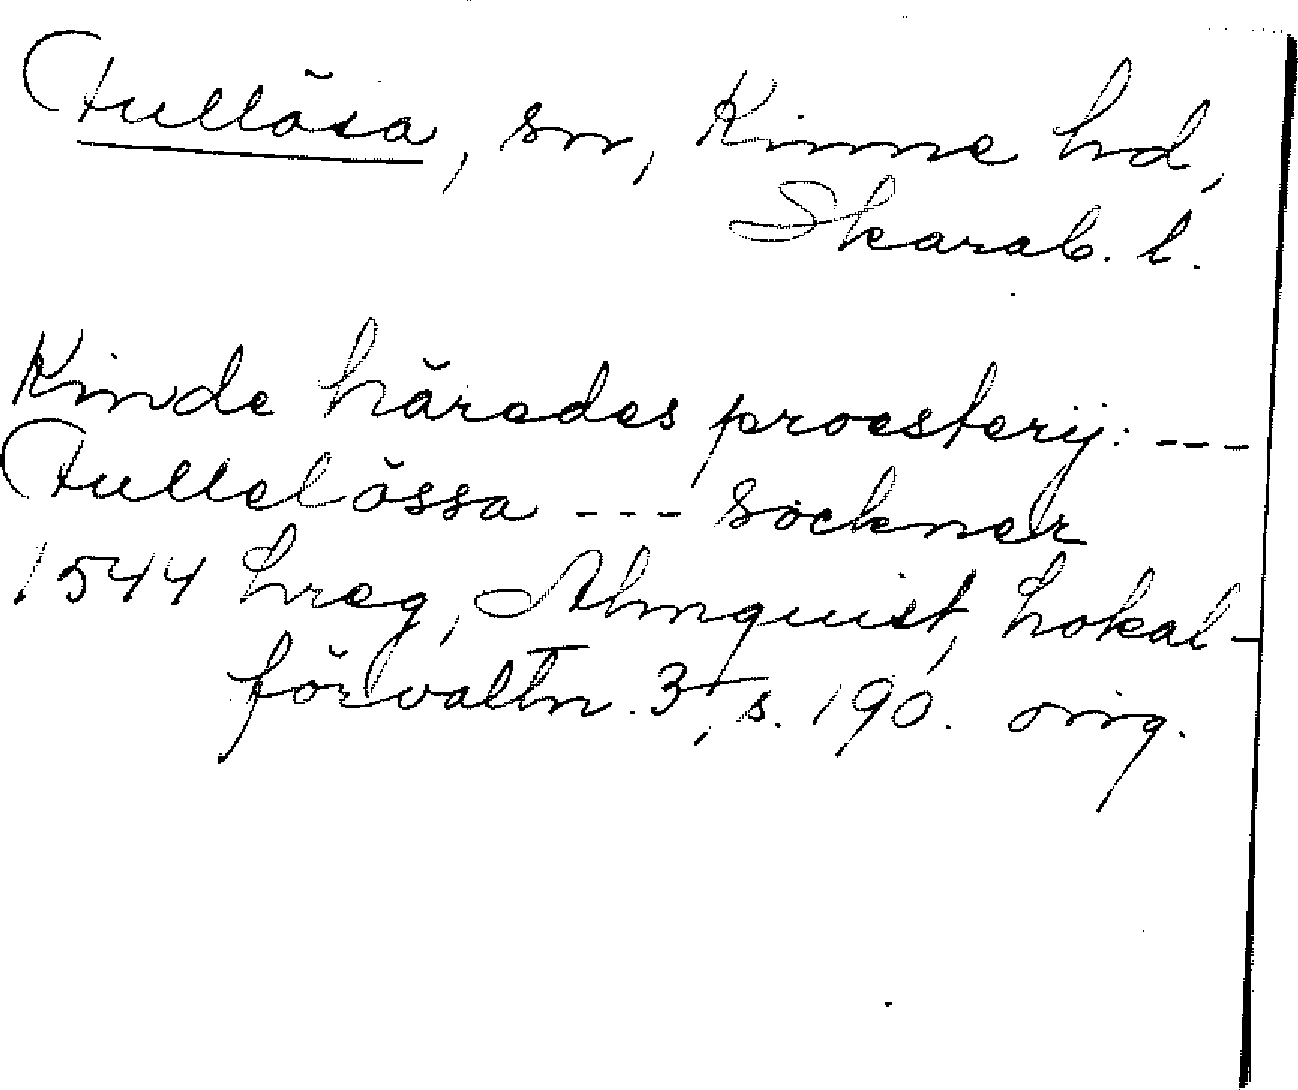 Fullösa, sn, Kinne hd,
Skarab. l.
Kinde härades proestery: ---
Fullelössa --- sockner
1544 Lreg, Almquist, Lokal-
förvaltn. 3, s. 190. orig.